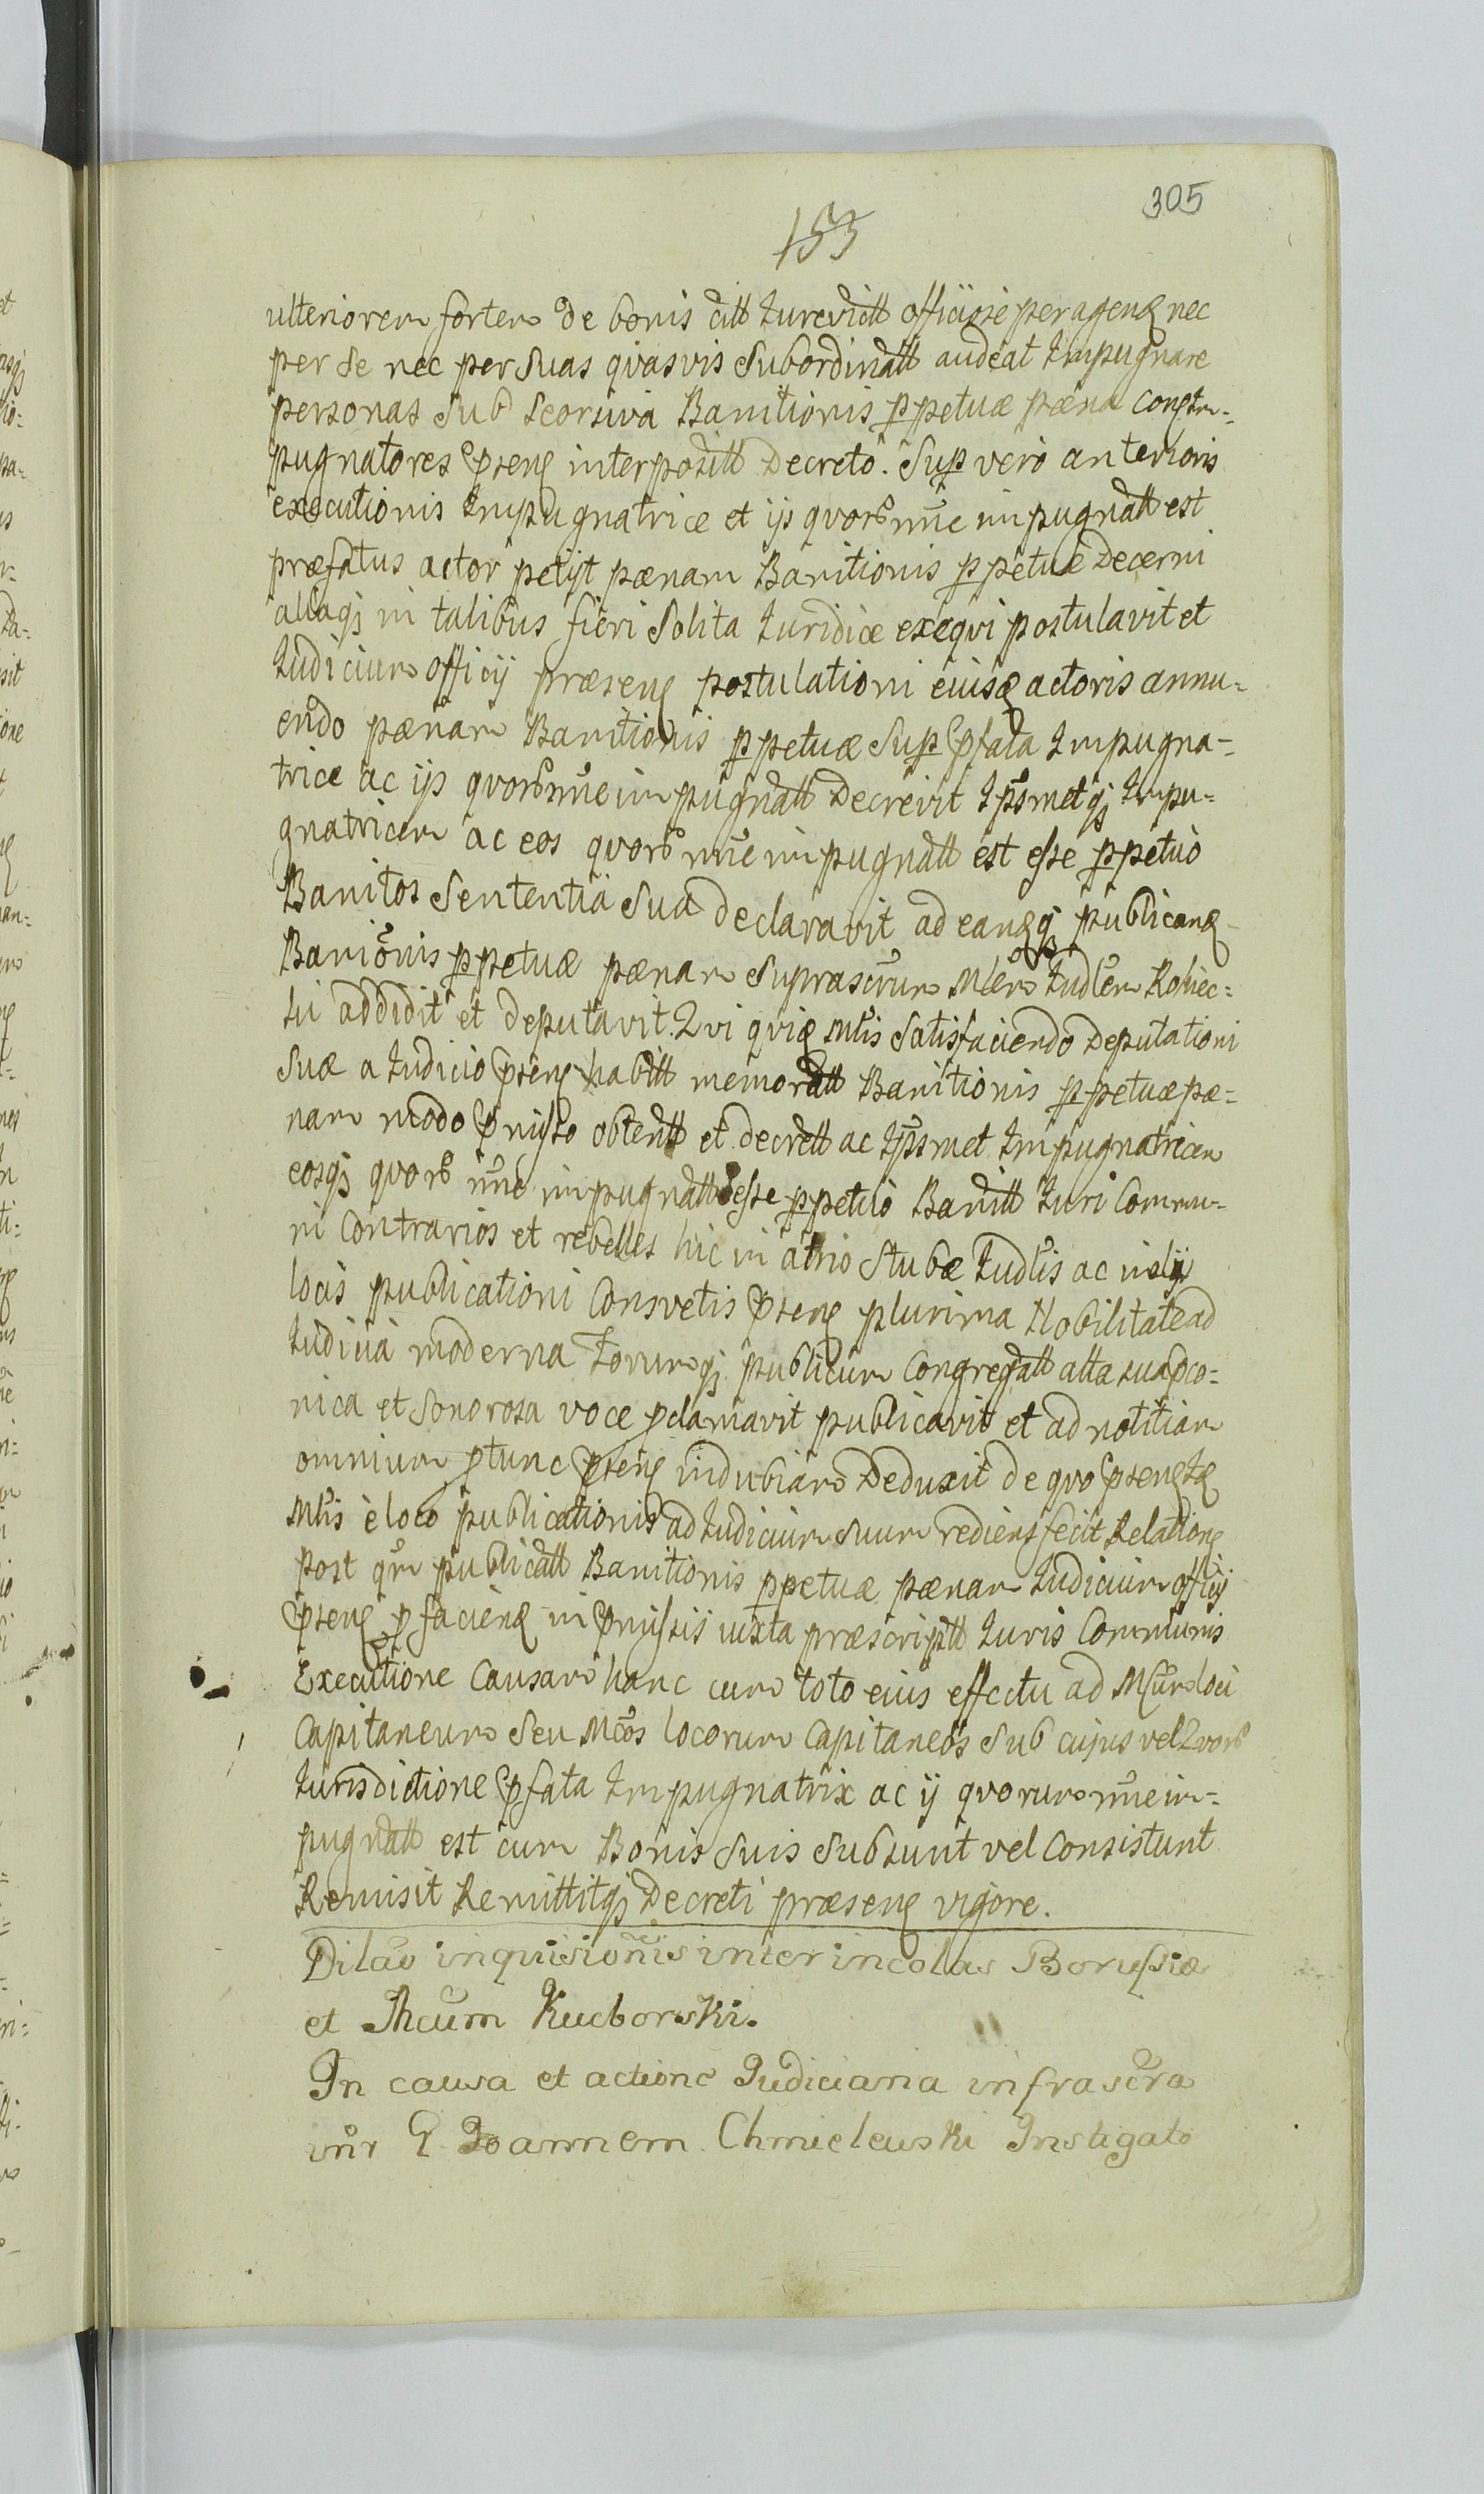 305
153
ulteriorem fortem de bonis citt Iurevictt officiose peragenꝗ nec
per se nec per suas qvasvis subordinatt audeat Impugnare
personas sub seorsiva Banitionis ppetuæ pæna contra-
pugnatores pseng interpositt Decreto. Sup vero anterioris
executionis Impugnatrice et ijs qvorũ nõie impugnatt est
præfatus actor petijt pænam Banitionis ppetuæ Decerni
aliaqꝫ in talibus fieri solita Iuridice exeqvi postulavit et
Iudicium officij præseng postulationi eiusꝗ actoris annu-
endo pænam Banitionis ppetuæ sup pfata Impugna-
trice ac ijs qvorũ nõie impugnatt Decrevit Ipsmetqꝫ Impu-
gnatricem ac eos qvorũ nõie impugnatt est esse ppetuo
Banitos sententia sua declaravit ad eanꝗqꝫ publicanꝗ
Banionis ppetuæ pænam suprascrum Mlem Iudlem Koniec-
ki addidit et deputavit. Qvi qviꝗ Mlis satisfaciendo Deputationi
suæ a Iudicio pseng habitt memoratt Banitionis ppetuæ pæ-
nam modo pmisso obtentt et decrett ac Ipsmet Impugnatricem
eosqꝫ qvorũ nõie impugnatt esse ppetuo Banitt Iuri Commu-
ni Contrarios et rebelles hic in atrio stubæ Iudlis ac in alijs
locis publicationi Consvetis pseng plurima Nobilitate ad
Iudicia moderna Forumqꝫ publicum Congregatt alta sua pco-
nica et sonorosa voce pclamavit publicavit et ad notitiam
omnium ptunc pseng indubiam Deduxit de qvo psengꝗ
Mlis e loco publicationis ad Iudicium suum rediens fecit Relatione
Post qvm publicatt Banitionis ppetuæ pænam Iudicium officij
pseng p facienꝗ in pmissis iuxta præscriptt Iuris Communis
Executione Causam hanc cum toto eius effectu ad Mcum loci
Capitaneum seu Mcos locorum Capitaneos sub cujus vel Qvorũ
Iurisdictione pfata Impugnatrix ac ij qvorum nõie im-
pugnatt est cum Bonis suis subsunt vel Consistunt
Remisit Remittitqꝫ Decreti præseng vigore.
Dilao inquisionis inter incolas Borussiæ
et Mcum Kucborski.
In causa et actione Judiciaria infrascra
intr G. Joannem Chmielewski Instigato